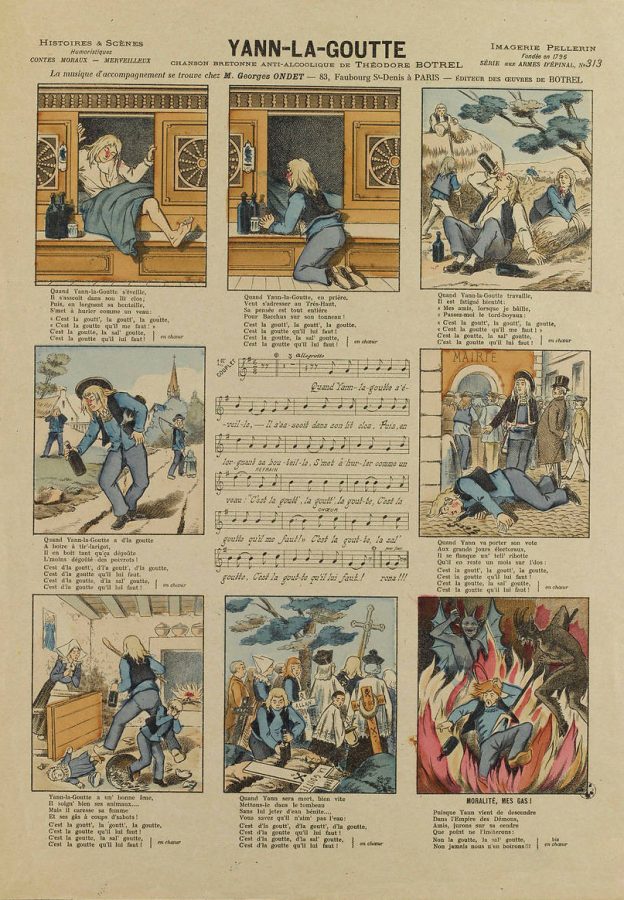 HISTOIRES & SCÈNES
Humoristiques
CONTES MORAUX — MERVEILLEUX
YANN-LA-GOUTTE
CHANSON BRETONNE ANTI-ALCOOLIQUE DE THÉODORE BOTREL
IMAGERIE PELLERIN
Fondée en 1796
SÉRIE AUX ARMES D'ÉPINAL, No 313
La musique d'accompagnement se trouve chez M. Georges ONDET — 83, Faubourg St-Denis à PARIS — ÉDITEUR DES ŒUVRES DE BOTREL
Quand Yann-la-Goutte s'éveille,
Il s'asseoit dans son lit clos;
Puis, en lorgnant sa bouteille,
S'met à hurler comme un veau:
« C'est la goutt', la goutt', la goutte,
« C'est la goutte qu'il me faut! »
C'est la goutte, la sal' goutte,
C'est la goutte qu'il lui faut!
en chœur
Quand Yann-la-Goutte, en prière,
Veut s'adresser au Très-Haut,
Sa pensée est tout entière
Pour Bacchus sur son tonneau!
C'est la goutt', la goutt', la goutte,
C'est la goutte qu'il lui faut!
C'est la goutte, la sal' goutte,
C'est la goutte qu'il lui faut!
en chœur
Quand Yann-la-Goutte travaille,
Il est fatigué bientôt:
« Mes amis, lorsque je bâille,
« Passez-moi le tord-boyaux:
« C'est la goutt', la goutt', la goutte,
« C'est la goutte qu'il me faut! »
C'est la goutte, la sal' goutte,
C'est la goutte qu'il lui faut!
en chœur
1er COUPLET
Allegretto
Quand Yann-la-goutte s'é-
-veil-le, — Il s'as-seoit dans son lit clos, Puis, en
lor-gnant sa bou-teil-le, S'met à hur-ler comme un
REFRAIN
veau: "C'est la goutt', la goutt', la gout-te, C'est la
CHŒUR
goutte qu'il me faut!" C'est la gout-te, la sal'
goutte, C'est la gout-te qu'il lui faut!
MAIRIE
Quand Yann-la-Goutte a d'la goutte
A boire à tir'-larigot,
Il en boit tant qu'ça dégoûte
L'moins dégoûté des poivrots!
C'est d'la goutt', d'la goutt', d'la goutte,
C'est d'la goutte qu'il lui faut,
C'est d'la goutte, d'la sal' goutte,
C'est d'la goutte qu'il lui faut!
en chœur
Quand Yann va porter son vote
Aux grands jours électoraux,
Il se flanque un' tell' ribote
Qu'il en reste un mois sur l'dos:
C'est la goutt', la goutt', la goutte,
C'est la goutte qu'il lui faut!
C'est la goutte, la sal' goutte,
C'est la goutte qu'il lui faut!
en chœur
Yann-la-Goutte a un' bonne âme,
Il soign' bien ses animaux...
Mais il caresse sa femme
Et ses gâs à coups d'sabots!
C'est la goutt', la goutt', la goutte,
C'est la goutte qu'il lui faut!
C'est la goutte, la sal' goutte,
C'est la goutte qu'il lui faut!
en chœur
Quand Yann sera mort, bien vite
Mettons-le dans le tombeau
Sans lui jeter d'eau bénite:
Vous savez qu'il n'aim' pas l'eau!
C'est d'la goutt', d'la goutt', d'la goutte,
C'est d'la goutte qu'il lui faut!
C'est d'la goutte, d'la sal' goutte,
C'est d'la goutte qu'il lui faut!
en chœur
MORALITÉ, MES GAS!
Puisque Yann vient de descendre
Dans l'Empire des Démons,
Amis, jurons sur sa cendre
Que point ne l'imiterons:
Non la goutte, la sal' goutte,
Non jamais nous n'en boirons!!!
bis
en chœur